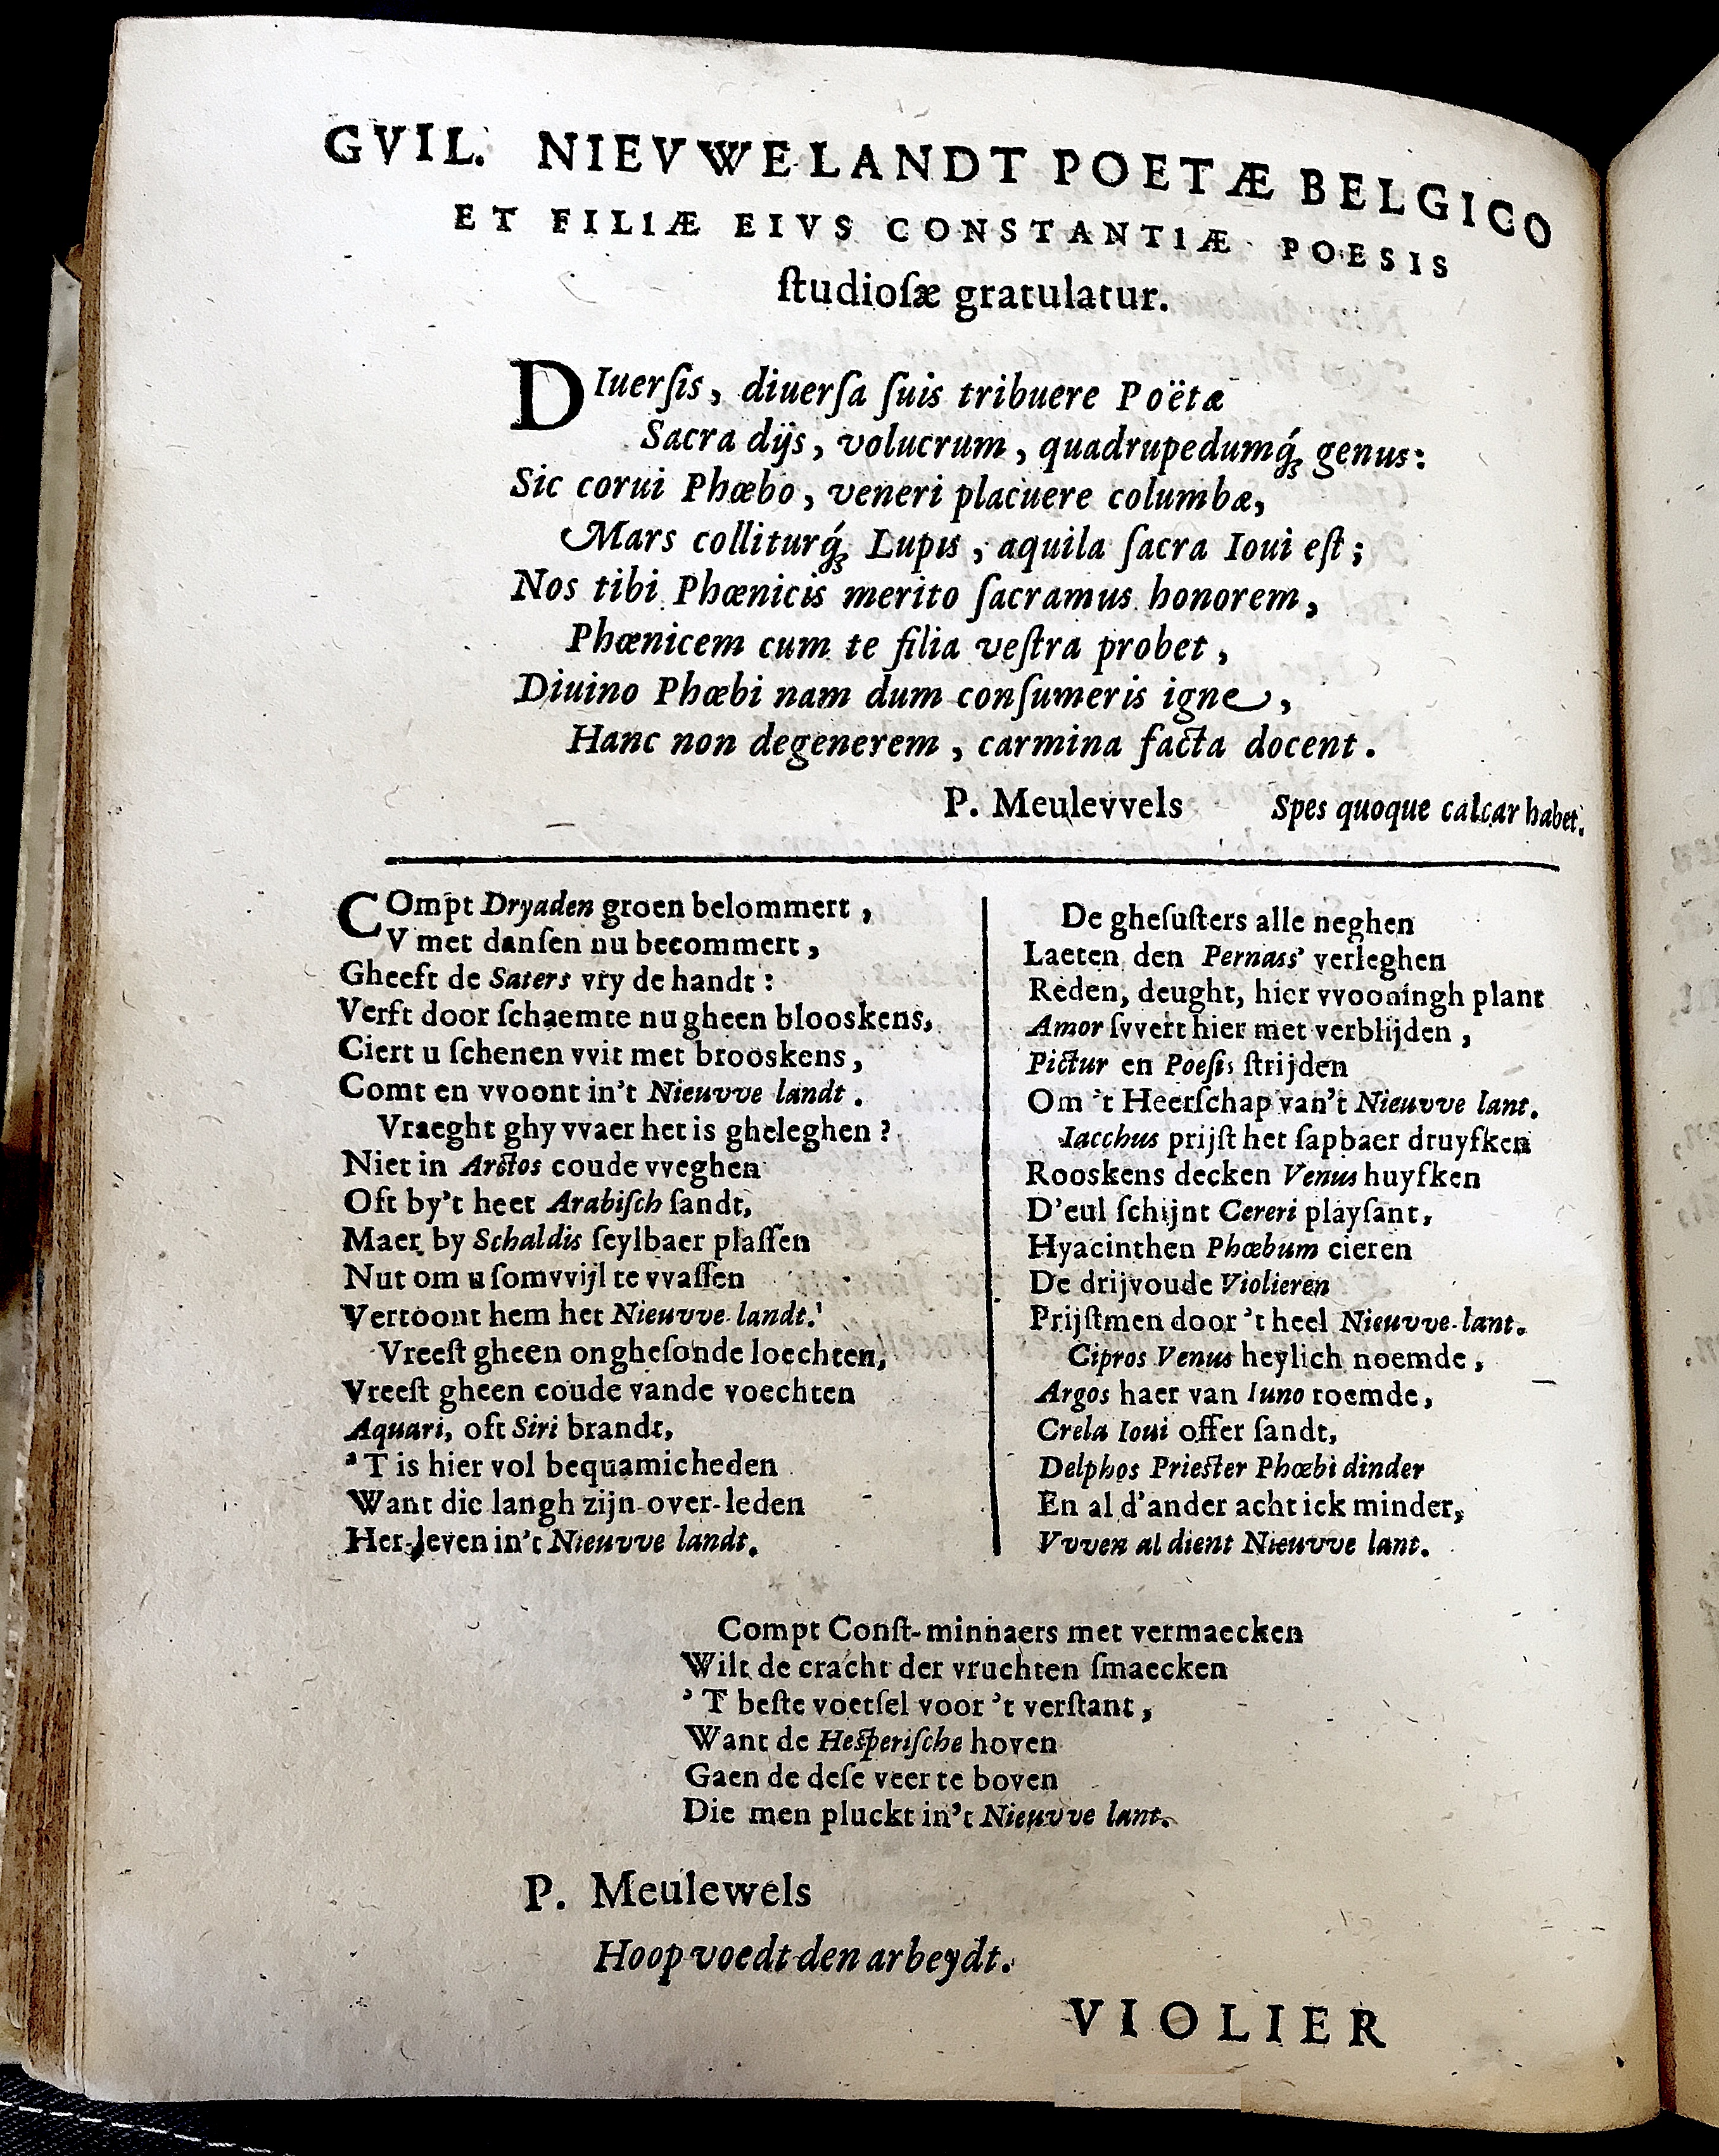 GVIL. NIEVWELANDT POETÆ BELGICO
ET FILIÆ EIVS CONSTANTIÆ POESIS
ſtudioſæ gratulatur.
DIuerſis, diuerſa ſuis tribuere Poëtæ
Sacra dijs, volucrum, quadrupedumq́ꝫ genus:
Sic corui Phœbo, veneri placuere columbæ,
Mars colliturq́ꝫ Lupis, aquila ſacra Ioui eſt;
Nos tibi Phœnicis merito ſacramus honorem,
Phœnicem cum te filia veſtra probet,
Diuino Phœbi nam dum conſumeris igne,
Hanc non degenerem, carmina facta docent.
P. Meulevvels Spes quoque calcar habet.
COmpt Dryaden groen belommert,
V met danſen nu becommert,
Gheeft de Saters vry de handt:
Verft door ſchaemte nu gheen blooskens,
Ciert u ſchenen vvit met brooskens,
Comt en vvoont in't Nieuvve landt.
Vraeght ghy vvaer het is gheleghen?
Niet in Arctos coude vveghen
Oft by't heet Arabiſch ſandt,
Maer by Schaldis ſeylbaer plaſſen
Nut om u ſomvvijl te vvaſſen
Vertoont hem het Nieuvve landt.
Vreeſt gheen ongheſonde loechten,
Vreeſt gheen coude vande voechten
Aquari, oft Siri brandt,
'T is hier vol bequamicheden
Want die langh zijn over-leden
Her-leven in't Nieuvve landt.
De gheſuſters alle neghen
Laeten den Pernass' verleghen
Reden, deught, hier vvooningh plant
Amor ſvvert hier met verblijden,
Pictur en Poeſis ſtrijden
Om 't Heerſchap van't Nieuvve lant.
Iacchus prijſt het ſapbaer druyfken
Rooskens decken Venus huyfken
D'eul ſchijnt Cereri playſant,
Hyacinthen Phœbum cieren
De drijvoude Violieren
Prijſtmen door 't heel Nieuvve lant.
Cipros Venus heylich noemde,
Argos haer van Iuno roemde,
Crela Ioui offer ſandt,
Delphos Prieſter Phœbi dinder
En al d'ander acht ick minder,
Vvven al dient Nieuvve lant.
Compt Conſt-minnaers met vermaecken
Wilt de cracht der vruchten ſmaecken
'T beſte voetſel voor 't verſtant,
Want de Heſperiſche hoven
Gaen de deſe veer te boven
Die men pluckt in't Nieuvve lant.
P. Meulewels
Hoop voedt den arbeydt.
VIOLIER